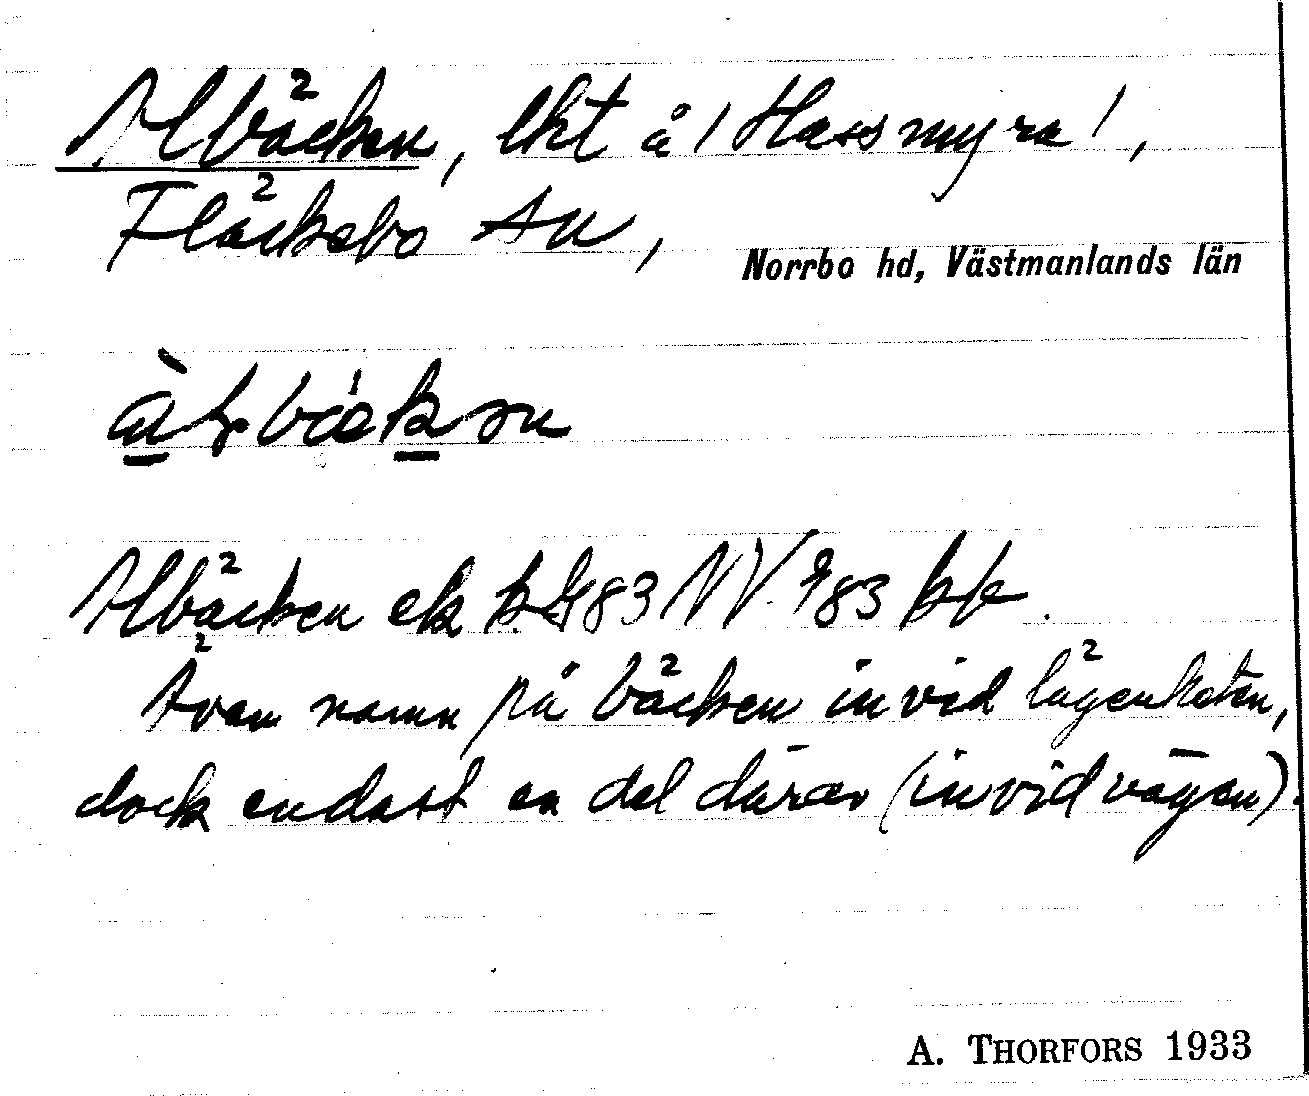 Albäcken, lht å 1 Hassmyra!,
Fläckebo sn,
Norrbo hd, Västmanlands län
Albäcken ek 83 NV 983
Även namn på bäcken invid lägenheten,
dock endast en del därav (invid vägen).
A. THORFORS 1933